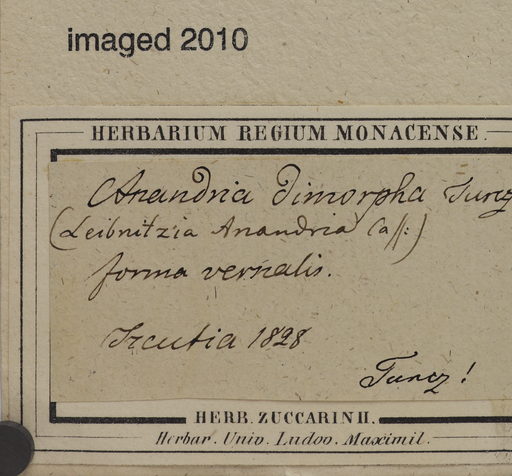 imaged 2010
HERBARIUM REGIUM MONACENSE.
Anandria dimorpha Turcz
(Leibnitzia Anandria Caſs:)
forma vernalis.
Ircutia 1828
Turcz!
HERB. ZUCCARINII.
Herbar. Univ. Ludov. Maximil.